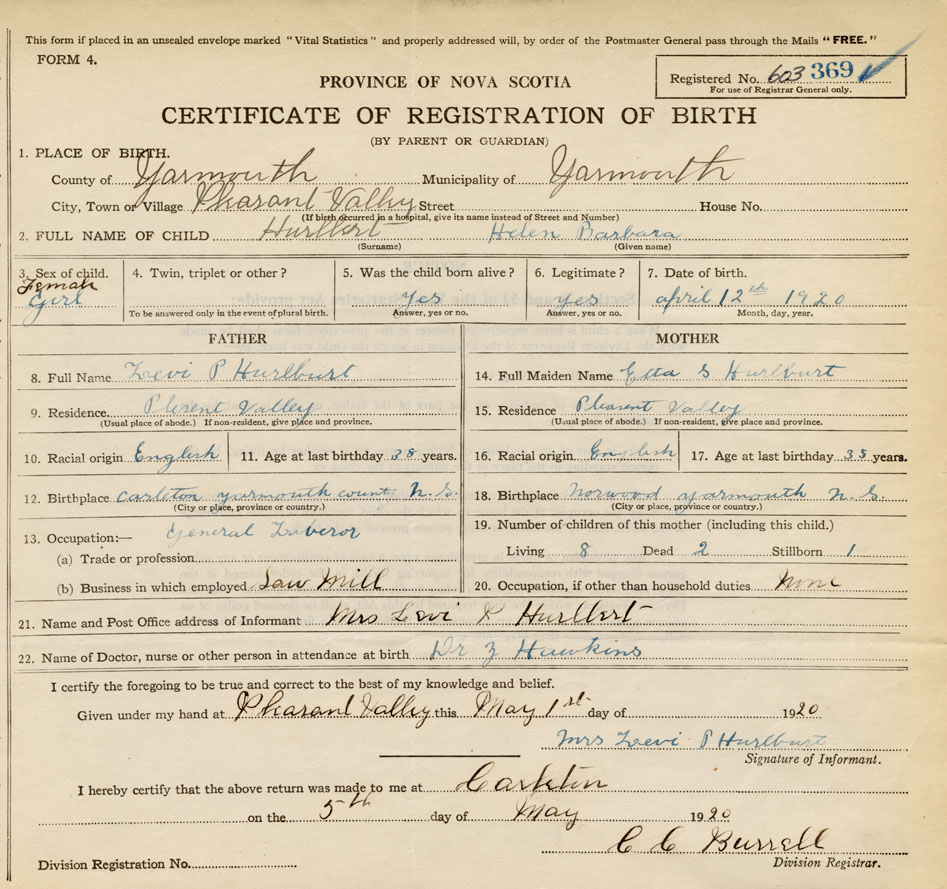 This form if placed in an unsealed envelope marked "Vital Statistics" and properly addressed will, by order of the Postmaster General pass through the Mails "FREE."
FORM 4.
Registered No. 603 369
For use of Registrar General only.
PROVINCE OF NOVA SCOTIA
CERTIFICATE OF REGISTRATION OF BIRTH
(BY PARENT OR GUARDIAN)
1. PLACE OF BIRTH.
County of Yarmouth Municipality of Yarmouth
City, Town or Village Pleasant Valley Street House No.
(If birth occurred in a hospital, give its name instead of Street and Number)
2. FULL NAME OF CHILD Hurlbert Helen Barbara
(Surname) (Given name)
3. Sex of child. 4. Twin, triplet or other? 5. Was the child born alive? 6. Legitimate? 7. Date of birth.
Female
Girl Yes Yes april 12th 1920
To be answered only in the event of plural birth. Answer, yes or no. Answer, yes or no. Month, day, year.
FATHER
8. Full Name Levi P Hurlburt
9. Residence. Plesent Valley
(Usual place of abode.) If non-resident, give place and province.
10. Racial origin English 11. Age at last birthday 38 years.
12. Birthplace Carleton yarmouth county N.S.
(City or place, province or country.)
13. Occupation:— General Laberor
(a) Trade or profession
(b) Business in which employed Saw Mill
MOTHER
14. Full Maiden Name Etta S Hurlburt
15. Residence Pleasent Valley
(Usual place of abode.) If non-resident, give place and province.
16. Racial origin English 17. Age at last birthday 35 years.
18. Birthplace Norwood yarmouth N.S.
(City or place, province or country.)
19. Number of children of this mother (including this child.)
Living 8 Dead 2 Stillborn 1
20. Occupation, if other than household duties None
21. Name and Post Office address of Informant Mrs Levi P Hurlbert
22. Name of Doctor, nurse or other person in attendance at birth Dr Z Hawkins
I certify the foregoing to be true and correct to the best of my knowledge and belief.
Given under my hand at Pleasant Valley this May 1st day of 1920
Mrs Levi P Hurlburt
Signature of Informant.
I hereby certify that the above return was made to me at Carleton
on the 5th day of May 1920
C C Burrell
Division Registrar.
Division Registration No.